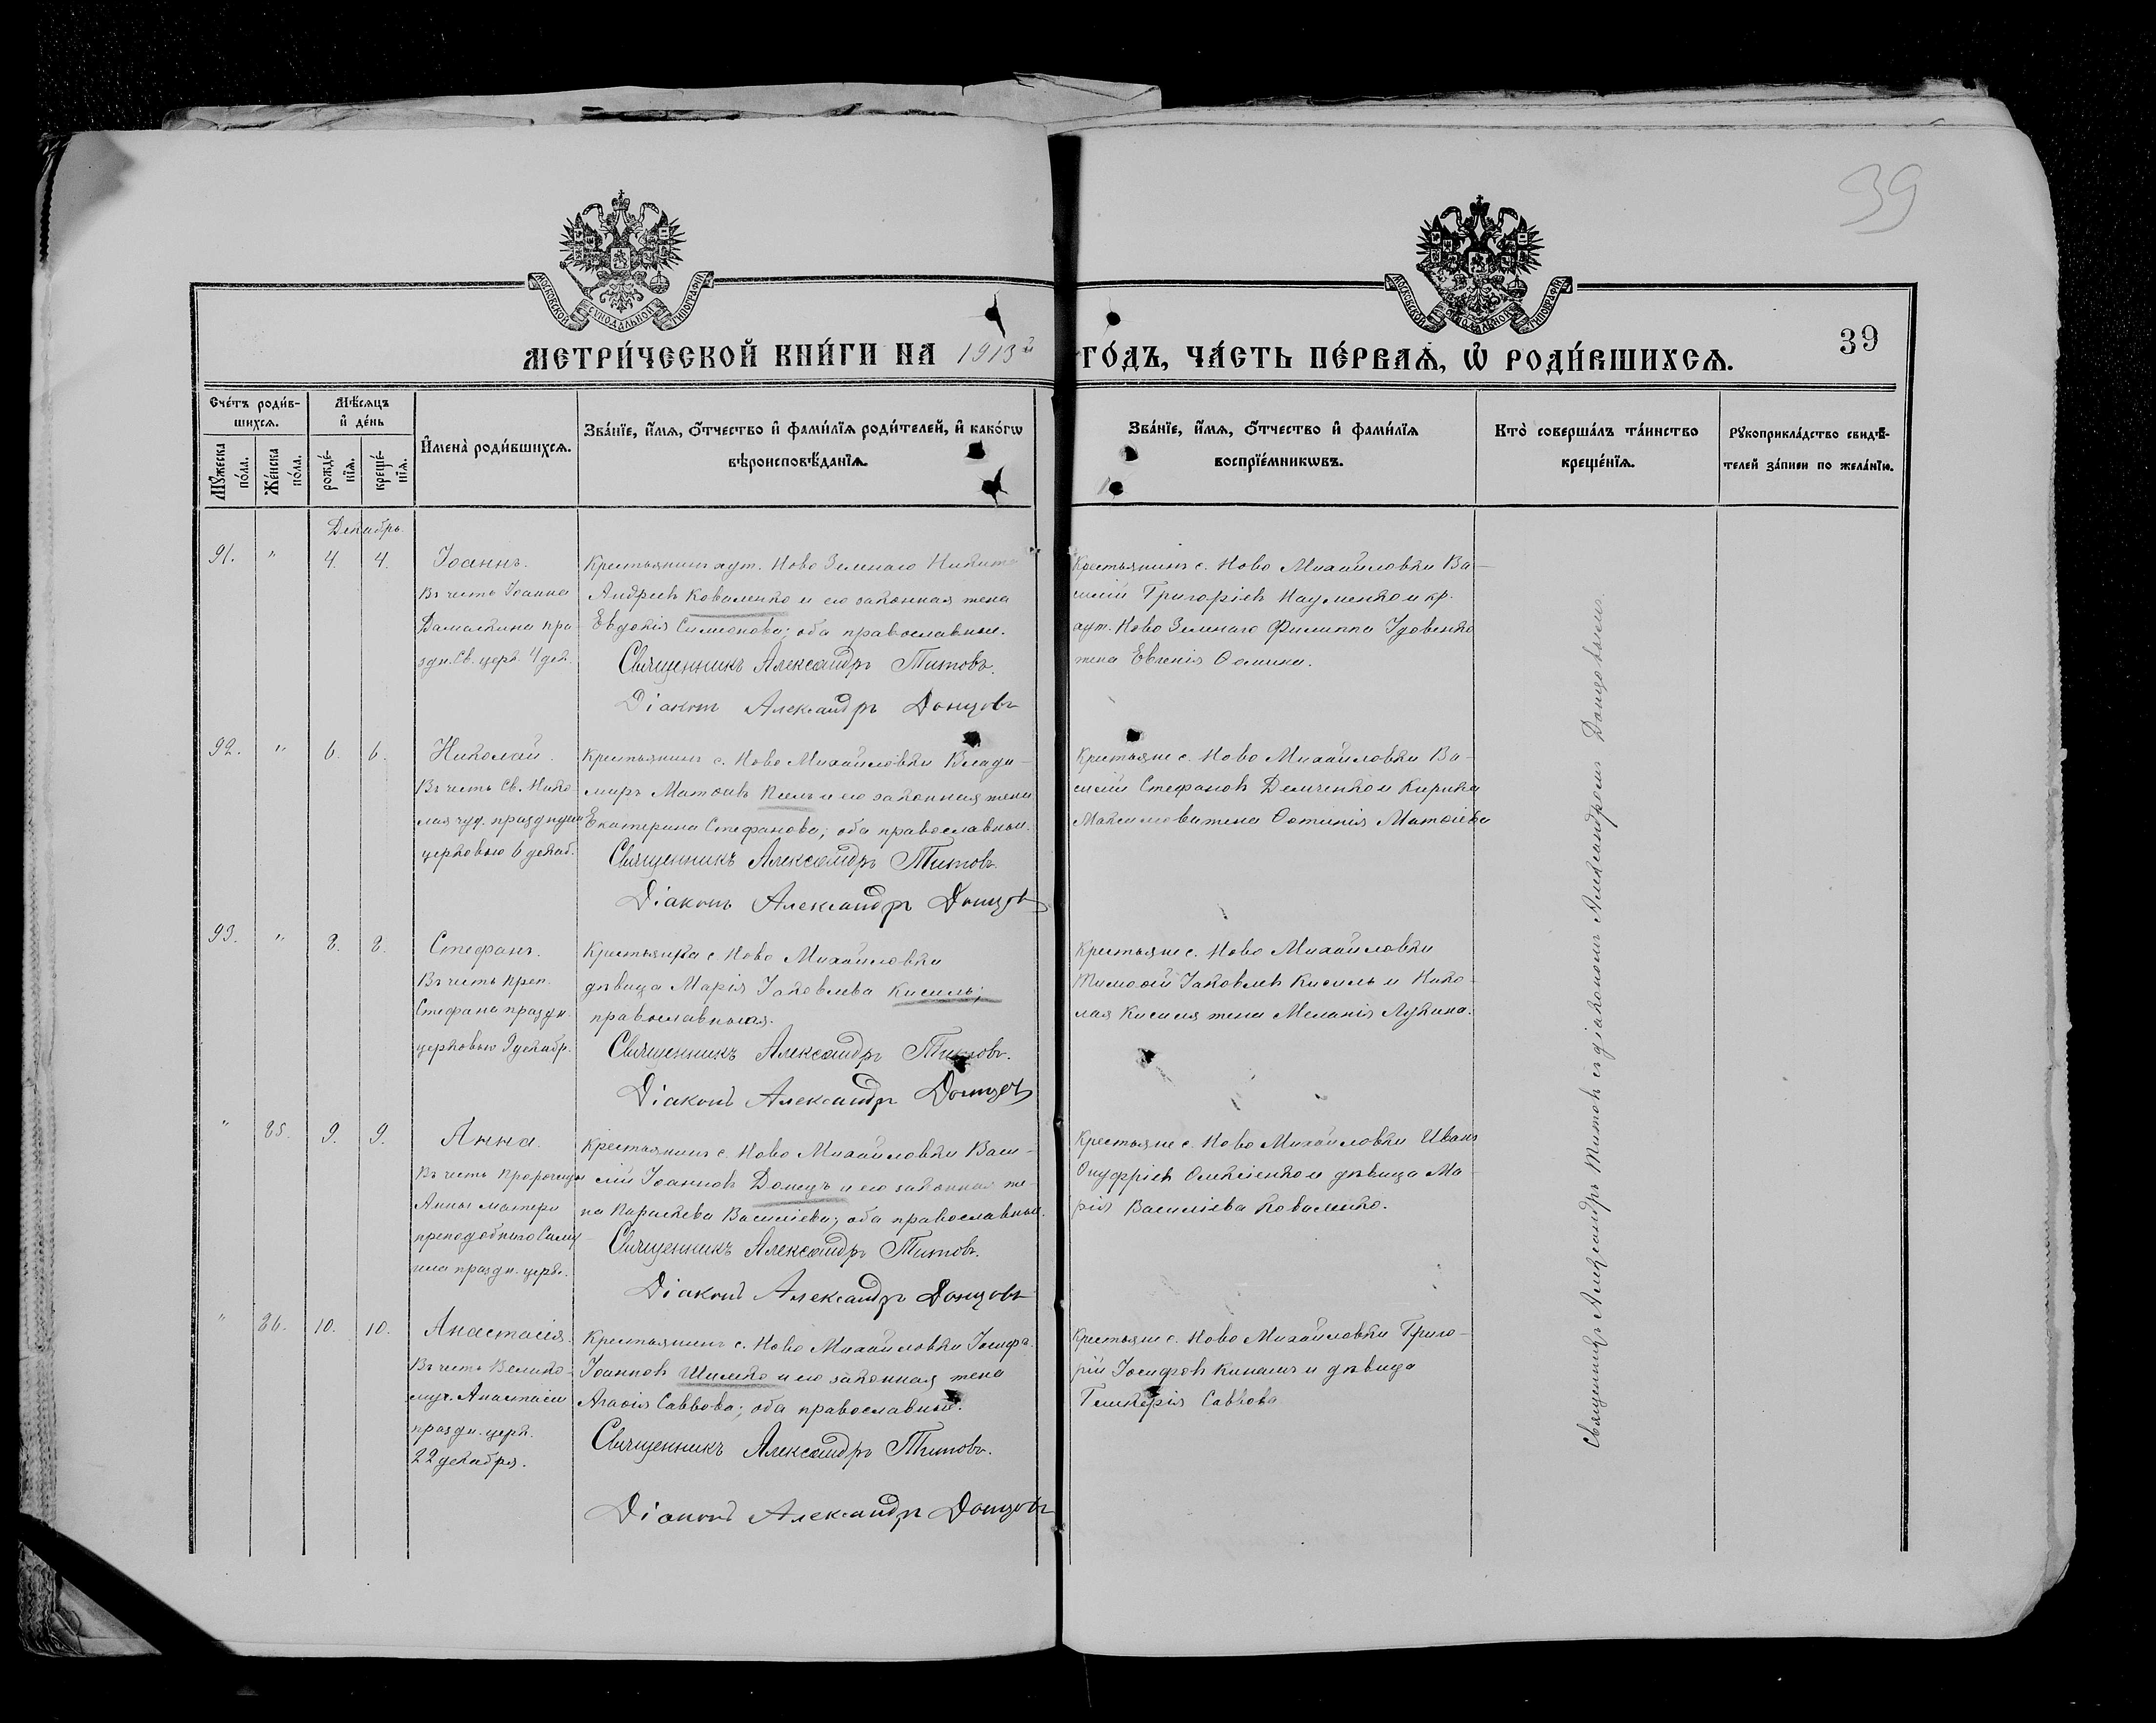 39
МОСКОВСКОЙ СѴНОДАЛЬНОЙ ТИПОГРАФІИ
МОСКОВСКОЙ СѴНОДАЛЬНОЙ ТИПОГРАФІИ
МЕТРИ́ЧЕСКОЙ КНИ́ГИ НА 1913й ГО́ДЪ, ЧА́СТЬ ПЕ́РВАѦ, Ѡ҆ РОДИ́ВШИХСѦ.
39
Сче́тъ роди́в-
шихсѧ.
Мѣ́сѧцъ
и҆ де́нь
Мꙋ́жеска по́ла.
Же́нска по́ла.
рожде́-
нїѧ.
креще́-
нїѧ.
И҆мена̀ роди́вшихсѧ.
Зва́нїе, и҆́мѧ, ѻ҆́тчество и҆ фами́лїѧ роди́телей, и҆ како́гѡ
вѣроисповѣ́данїѧ.
Зва́нїе, и҆́мѧ, ѻ҆́тчество и҆ фами́лїѧ
воспрїе́мникѡвъ.
Кто̀ соверша́лъ та́инство
креще́нїѧ.
Рꙋкоприкла́дство свидѣ́-
телей за́писи по жела́нїю.
Декабрь.
91. " 4. 4. Іоаннъ.
Въ честь Іоанна
Дамаскина пра
здн. Св. церк. 4 дек.
Крестьянинъ хут. Ново Зеленаго Никита
Андреевъ Коваленко и его законная жена
Евдокія Симеонова; оба православные.
Священникъ Александръ Титовъ.
Діаконъ Александръ Донцовъ
Крестьянинъ с. Ново Михайловки Ва-
силій Григоріевъ Науменко и кр.
хут. Ново Зеленаго Филиппа Удовенко
жена Евгенія Ѳомина.
92. " 6. 6. Николай.
Въ честь Св. Нико
лая чуд. празднуем
церковью 6 декаб.
Крестьянинъ с. Ново Михайловки Влади-
миръ Матѳіевъ и его законная жена
Екатерина Стефанова; оба православные.
Священникъ Александръ Титовъ.
Діаконъ Александръ Донцовъ
Крестьяне с. Ново Михайловки Ва-
силій Стефановъ Демченко и Кирика
Максимова жена Фотинія Матѳіева
93. " 8. 8. Стефанъ.
Въ честь преп.
Стефана праздн.
церковью 9 декабр.
Крестьянка с. Ново Михайловки
дѣвица Марія Іаковлева Кисиль;
православная.
Священникъ Александръ Титовъ.
Діаконъ Александръ Донцовъ
Крестьяне с. Ново Михайловки
Тимоѳей Іаковлевъ Кисиль и Нико-
лая Кисиля жена Меланія Лукина.
" 85. 9. 9. Анна.
Въ честь пророчицы
Анны матери
преподобнаго Саму
ила праздн. церк.
Крестьянинъ с. Ново Михайловки Васи-
лій Іоанновъ Донецъ и его законная же-
на Параскева Василіева; оба православные.
Священникъ Александръ Титовъ.
Діаконъ Александръ Донцовъ
Крестьяне с. Ново Михайловки Иванъ
Онуфріевъ Алексіенко и дѣвица Ма-
рія Василіева Коваленко.
" 86. 10. 10. Анастасія.
Въ честь Велико-
муч. Анастасіи
праздн. церк.
22 декабря.
Крестьянинъ с. Ново Михайловки Іосифъ
Іоанновъ Шилько и его законная жена
Агаѳія Саввова; оба православные.
Священникъ Александръ Титовъ.
Діаконъ Александръ Донцовъ
Крестьяне с. Ново Михайловки Григо-
рій Іосифовъ и дѣвица
Гликерія Саввова
Священникъ Александръ Титовъ съ діакономъ Александромъ Донцовымъ.